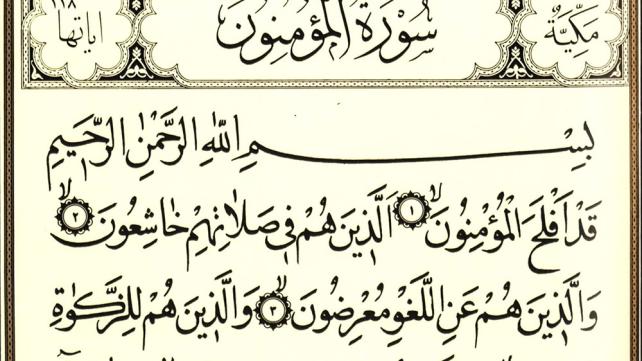 مَكِّيَّة سُورَةُ الْمُؤْمِنُونَ اٰيَاتُهَا ١١٨
بِسْمِ اللّٰهِ الرَّحْمٰنِ الرَّحٖيمِ
قَدْ اَفْلَحَ الْمُؤْمِنُونَۙ ١ اَلَّذٖينَ هُمْ فٖى صَلَاتِهِمْ خَاشِعُونَۙ ٢
وَالَّذٖينَ هُمْ عَنِ اللَّغْوِ مُعْرِضُونَۙ ٣ وَالَّذٖينَ هُمْ لِلزَّكٰوةِ